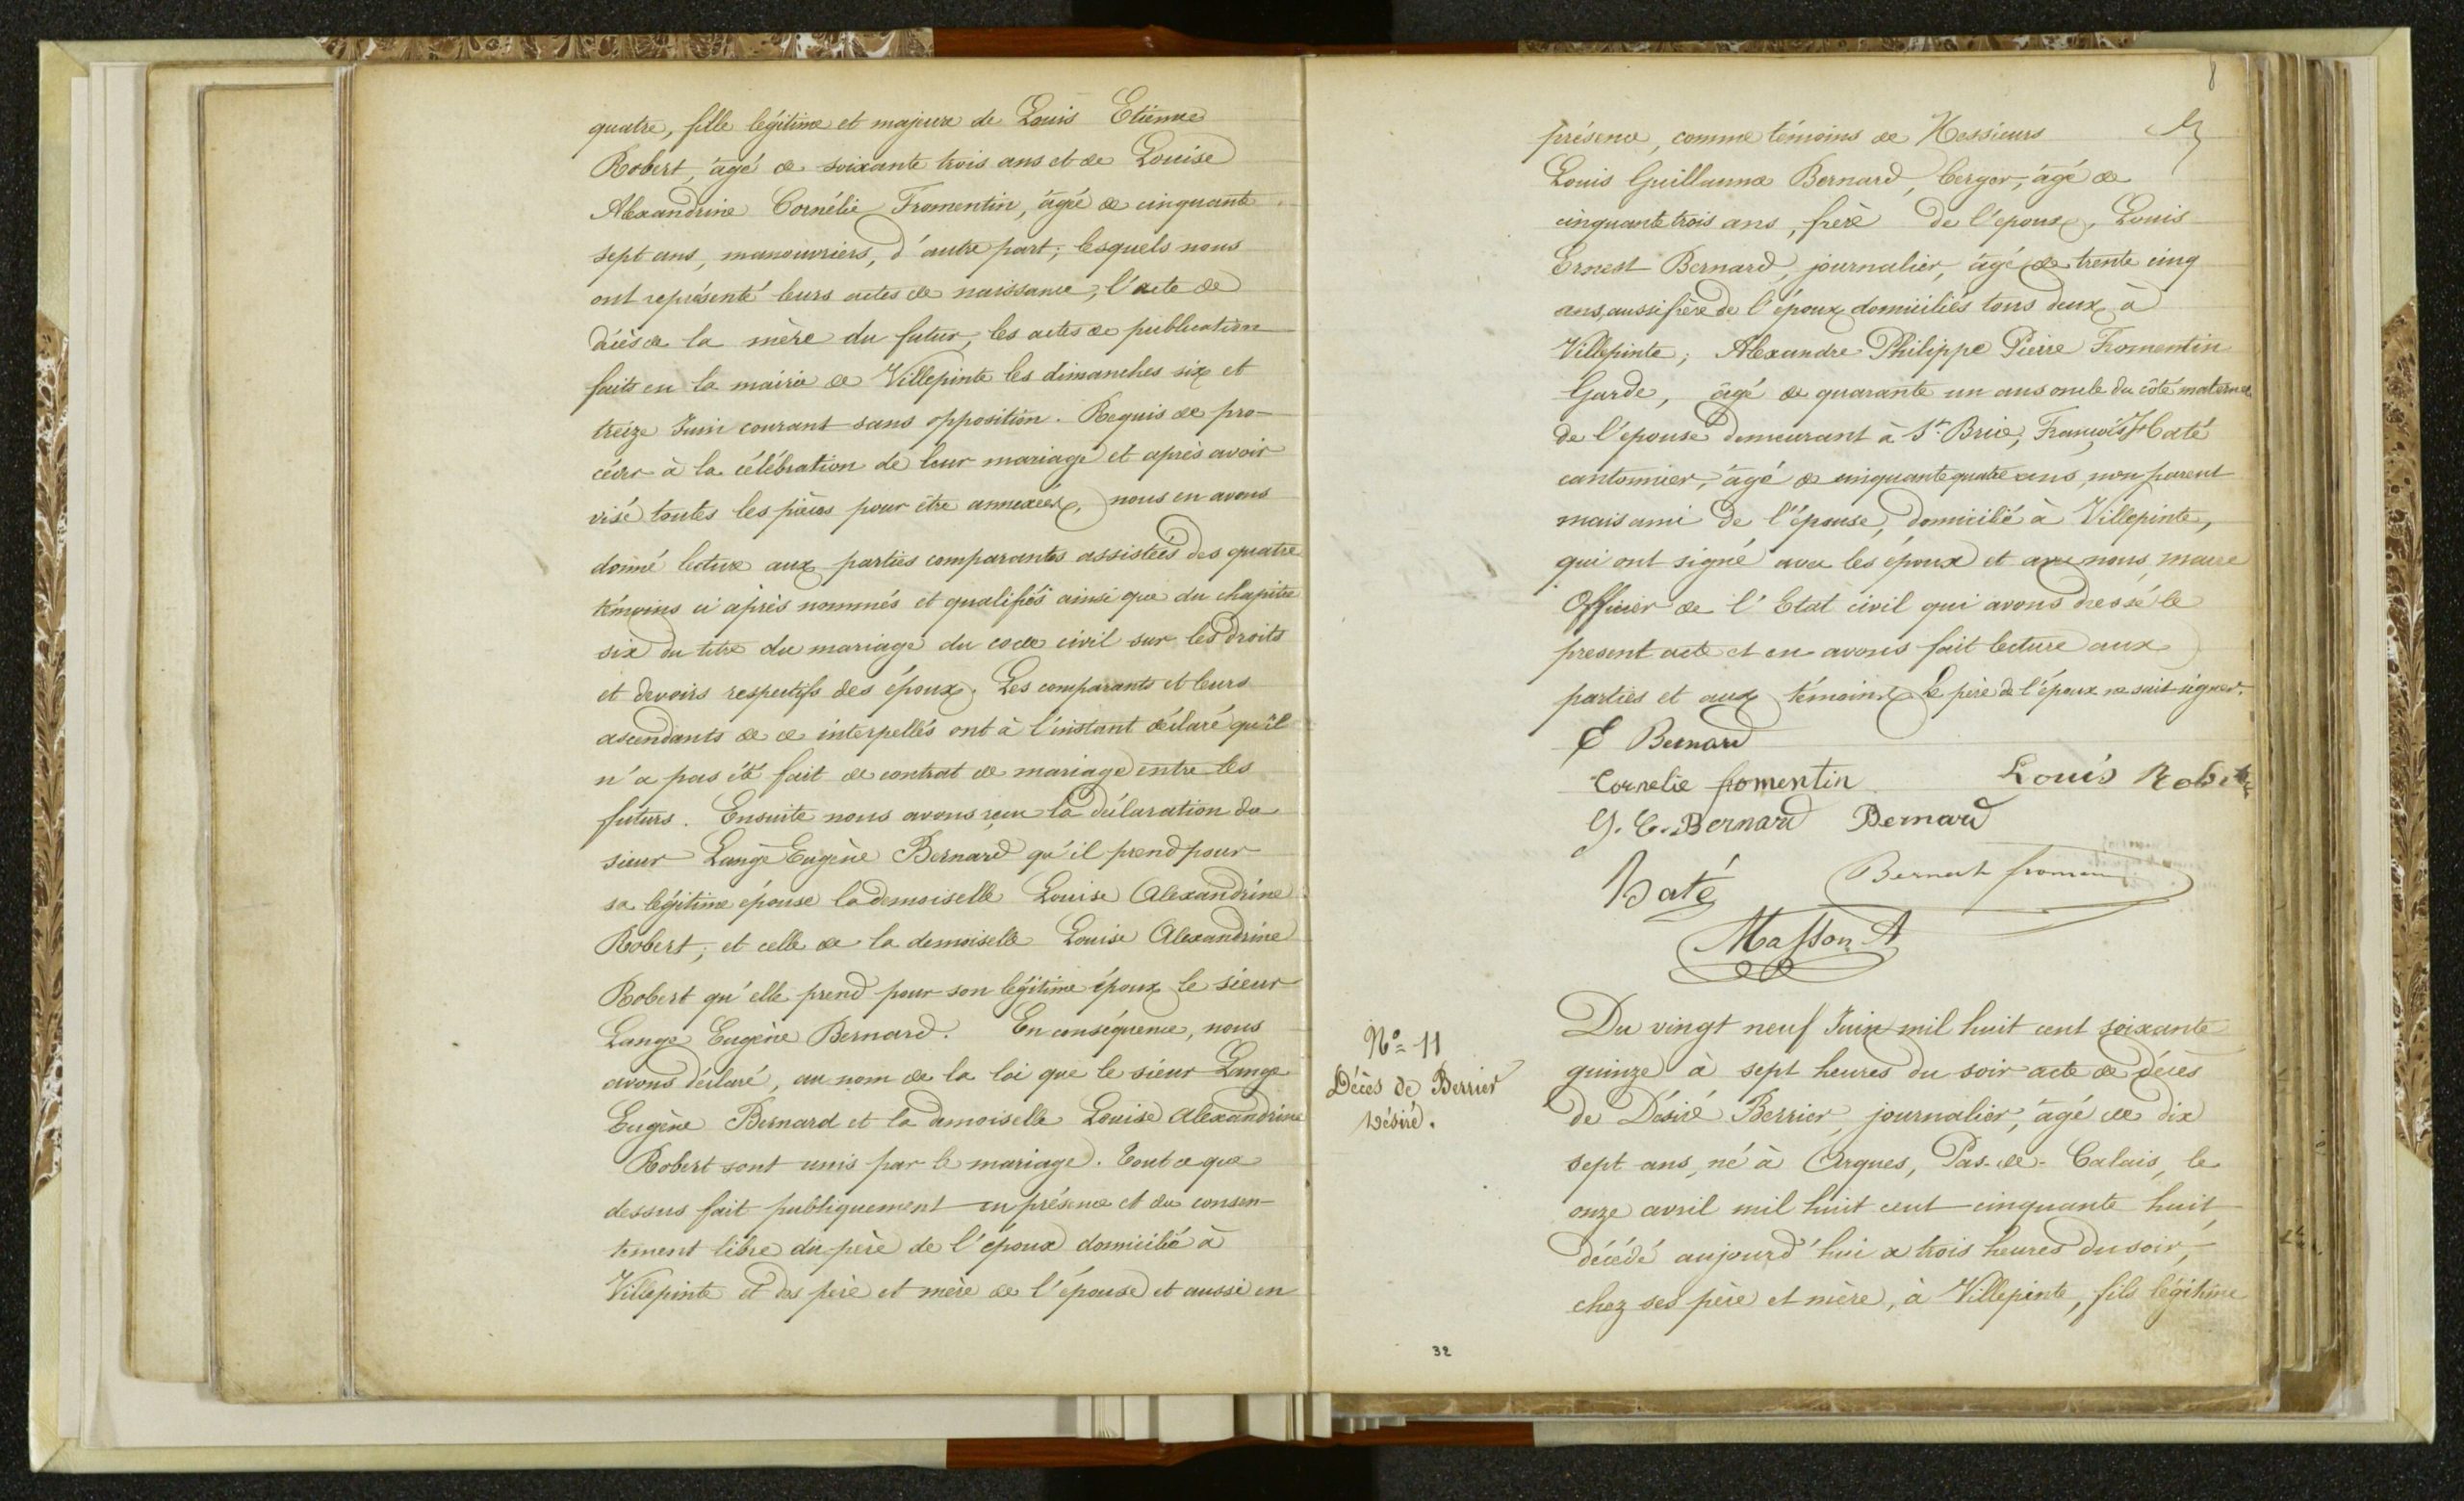 quatre, fille légitime et majeure de Louis Etienne
Robert, âgé de soixante trois ans et de Louise
Alexandrine Cornélie Fromentin, âgée de cinquante
sept ans, manouvriers, d'autre part; lesquels nous
ont représenté leurs actes de naissance, l'acte de
décès de la mère du futur, les actes de publication
faits en la mairie de Villepinte les dimanches six et
treize Juin courant sans opposition. Requis de pro-
céder à la célébration de leur mariage et après avoir
visé toutes les pièces pour être annexées, nous en avons
donné lecture aux parties comparantes assistées des quatre
témoins ci après nommés et qualifiés ainsi que du chapitre
six du titre du mariage du code civil sur les droits
et devoirs respectifs des époux. Les comparants et leurs
ascendants de ce interpellés ont à l'instant déclaré qu'il
n'a pas été fait de contrat de mariage entre les
futurs. Ensuite nous avons reçu la déclaration du
sieur Lange Eugène Bernard qu'il prend pour
sa légitime épouse la demoiselle Louise Alexandrine
Robert; et celle de la demoiselle Louise Alexandrine
Robert qu'elle prend pour son légitime époux le sieur
Lange Eugène Bernard. En conséquence, nous
avons déclaré, au nom de la loi que le sieur Lange
Eugène Bernard et la demoiselle Louise Alexandrine
Robert sont unis par le mariage. Tout ce que
dessus fait publiquement en présence et du consen-
tement libre du père de l'époux domicilié à
Villepinte et des père et mère de l'épouse et aussi en
8
présence, comme témoins de Messieurs
Louis Guillaume Bernard, berger, âgé de
cinquante trois ans, frère de l'epoux, Louis
Ernest Bernard, journalier, âgé de trente cinq
ans, aussi frère de l'époux domiciliés tous deux à
Villepinte; Alexandre Philippe Pierre Fromentin
Garde, âgé de quarante un ans oncle du côté maternel
de l'epouse demeurant à St. Brice, François Haté
cantonnier, âgé de cinquante quatre ans, non parent
mais ami de l'épouse, domicilié à Villepinte,
qui ont signé avec les époux et avec nous, maire
Officier de l'Etat civil qui avons dressé le
present acte et en avons fait lecture aux
parties et aux témoins. Le père de l'époux ne sait signer.
E Bernard
Cornelie fromentin Louis Robert
G. C. Bernard Bernard
Haté
Masson A
Nº 11
Décès de Berrier
Désiré.
Du vingt neuf Juin mil huit cent soixante
quinze à sept heures du soir acte de décès
de Désiré Berrier, journalier, âgé de dix
sept ans, né à Arques, Pas-de-Calais, le
onze avril mil huit cent cinquante huit,
décédé aujourd'hui a trois heures du soir,
chez ses père et mère, à Villepinte, fils légitime
32